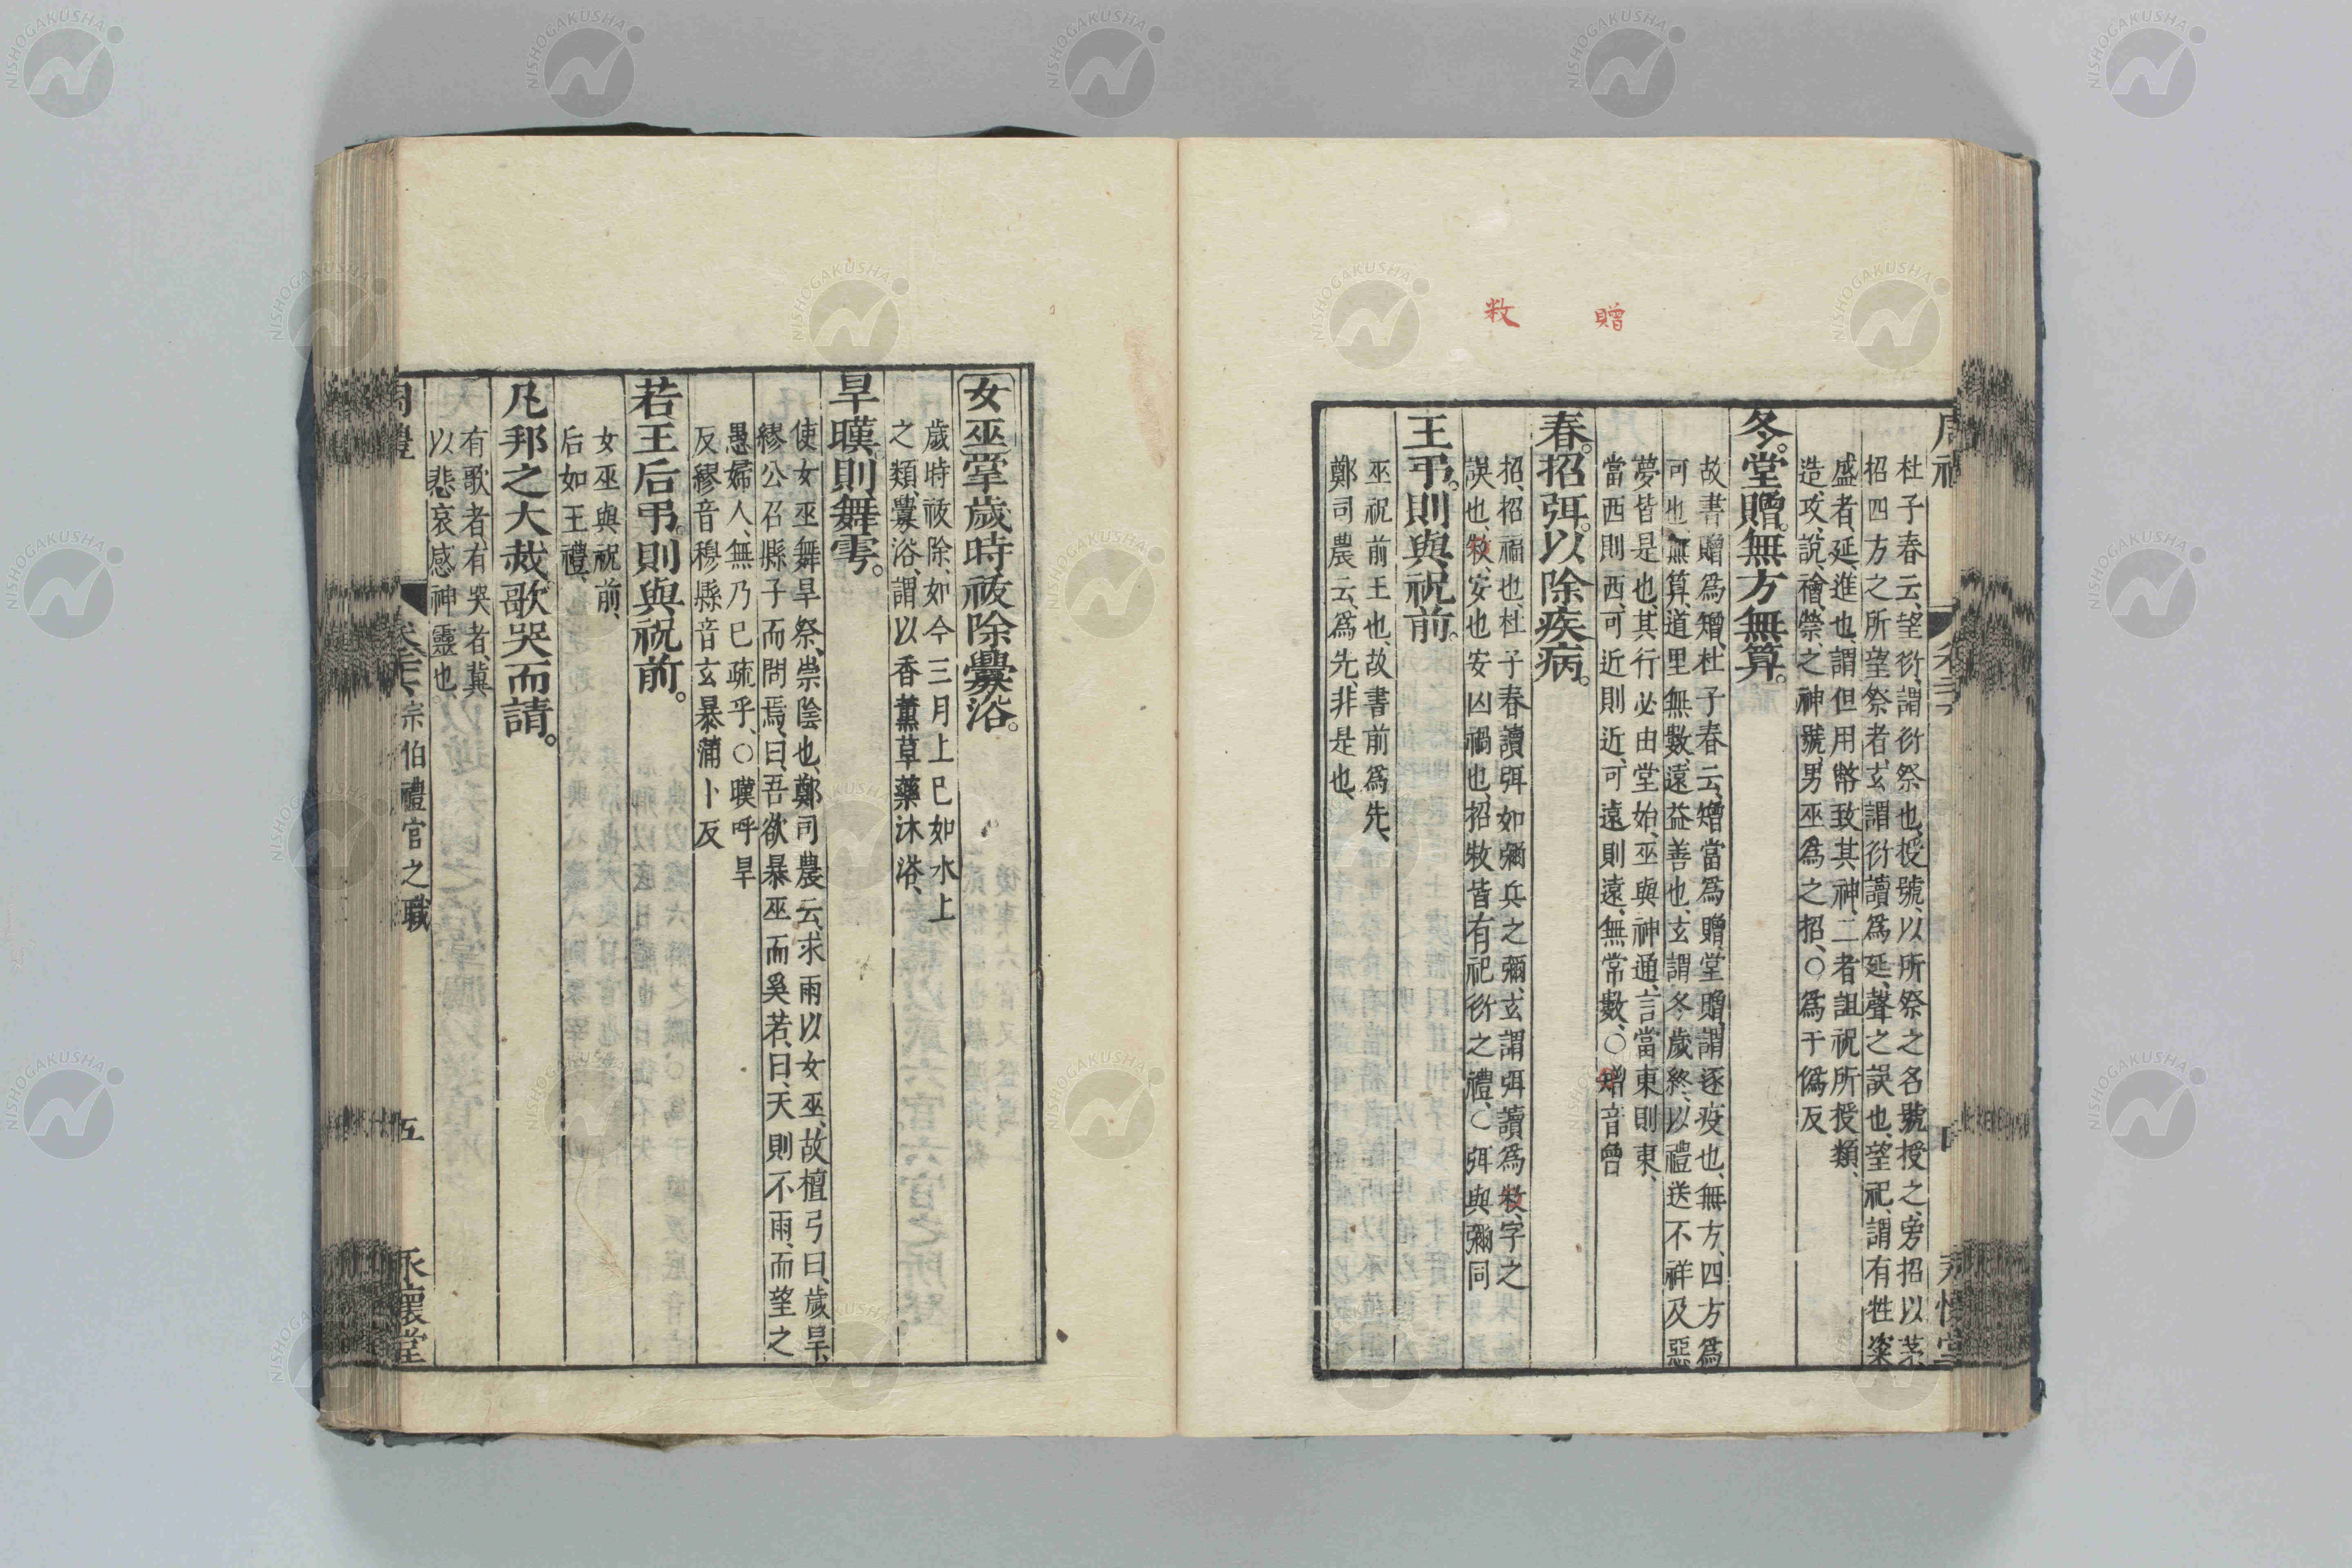 贈
敉
杜子春云、望衍、謂衍祭也、授號、以所祭之名號授之、旁招以茅、
招四方之所望祭者、玄謂衍讀爲延、聲之誤也、望祀、謂有牲粢
盛者、延、進也、謂但用幣致其神、二者詛祝所授類、
造、攻、說、禬、禜、之神號、男巫爲之招、○爲于僞反
冬。堂贈。無方無算。
故書贈爲矰、杜子春云、矰當爲贈、堂贈、謂逐疫也、無方、四方爲
可也、無算、道里無數、遠益善也、玄謂冬歲終、以禮送不祥及惡
夢皆是也、其行必由堂始、巫與神通、言當東則東、
當西則西、可近則近、可遠則遠、無常數、○矰音曾
春。招弭。以除疾病。
招、招福也、杜子春讀弭如彌兵之彌、玄謂弭讀爲敉、字之
誤也、敉、安也、安凶禍也、招敉皆有祀衍之禮、○弭與彌同
王弔。則與祝前。
巫祝前王也、故書前爲先、
鄭司農云、爲先、非是也、
女巫掌歲時祓除釁浴。
歲時祓除、如今三月上巳如水上
之類、釁浴、謂以香薰草藥沐浴、
旱暵則舞雩。
使女巫舞旱祭、崇陰也、鄭司農云、求雨以女巫、故檀弓曰、歲旱、
繆公召縣子而問焉、曰、吾欲暴巫而奚若、曰、天則不雨、而望之
愚婦人、無乃已疏乎、○暵呼旱
反繆音穆縣音玄暴蒲卜反
若王后弔。則與祝前。
女巫與祝前、
后如王禮、
凡邦之大烖歌哭而請。
有歌者、有哭者、冀
以悲哀感神靈也、
宗伯禮官之職
五
永懷堂
NISHOGAKUSHA